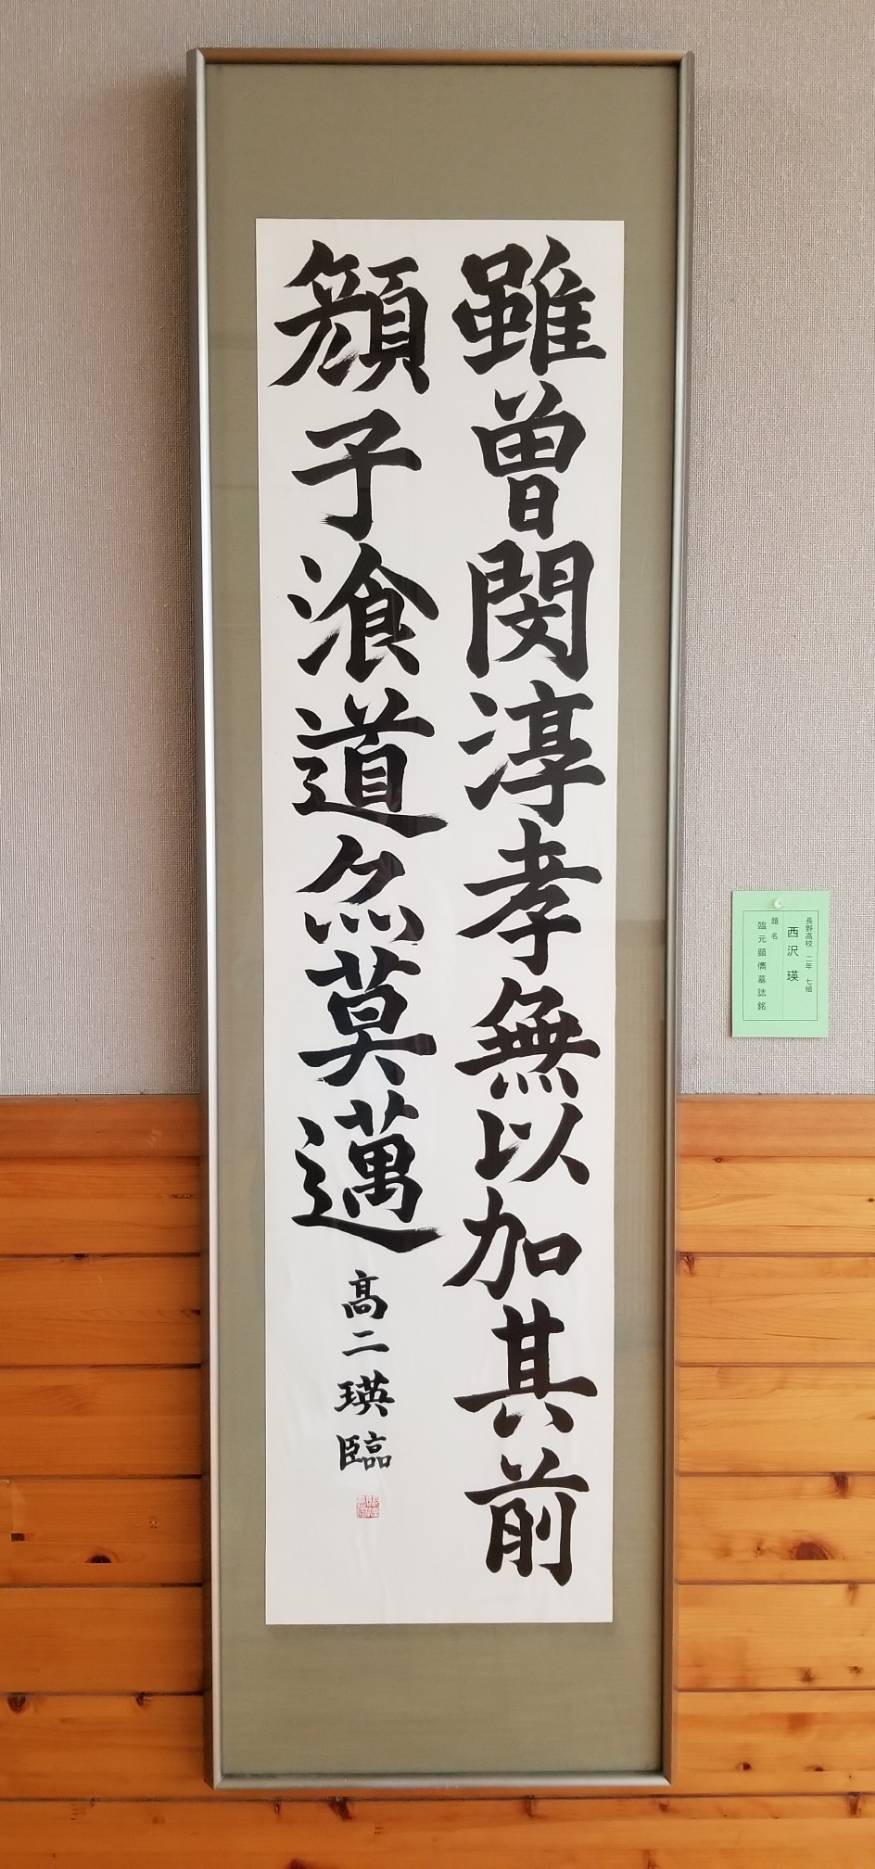 雖曽閔淳孝無以加其前
顔子飡道尒莫邁
高二瑛臨
長野高校 二年 七組
西沢 瑛
題名
臨元顕儁墓誌銘